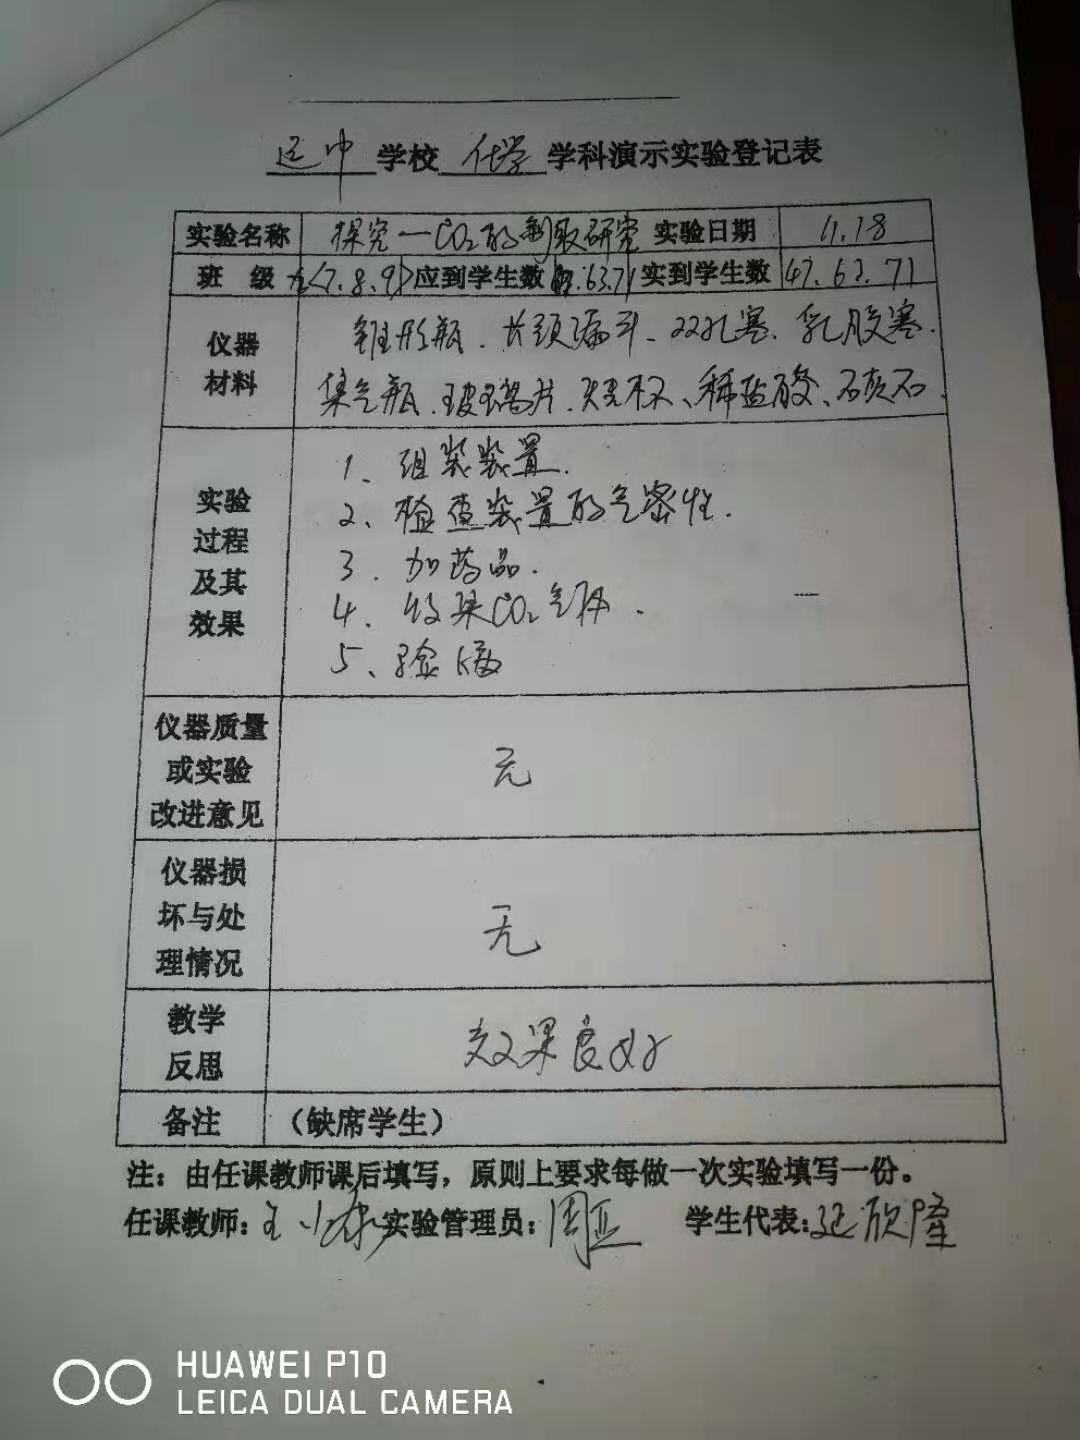 学校 化学 学科演示实验登记表
实验名称 探究一CO₂的制取研究 实验日期 11.18
班 级 九<7.8.9> 应到学生数 63.71 实到学生数 47.62.71
仪器材料 锥形瓶.长颈漏斗、双孔塞.乳胶塞.
集气瓶.玻璃片.烧杯、稀盐酸、石灰石.
实验过程及其效果
1、组装装置.
2、检查装置的气密性.
3.加药品.
4.收集CO₂气体.
5、验满
仪器质量或实验改进意见 无
仪器损坏与处理情况 无
教学反思 效果良好
备注 (缺席学生)
注：由任课教师课后填写，原则上要求每做一次实验填写一份。
任课教师：王小 实验管理员：周亚 学生代表：延欣隆
HUAWEI P10
LEICA DUAL CAMERA